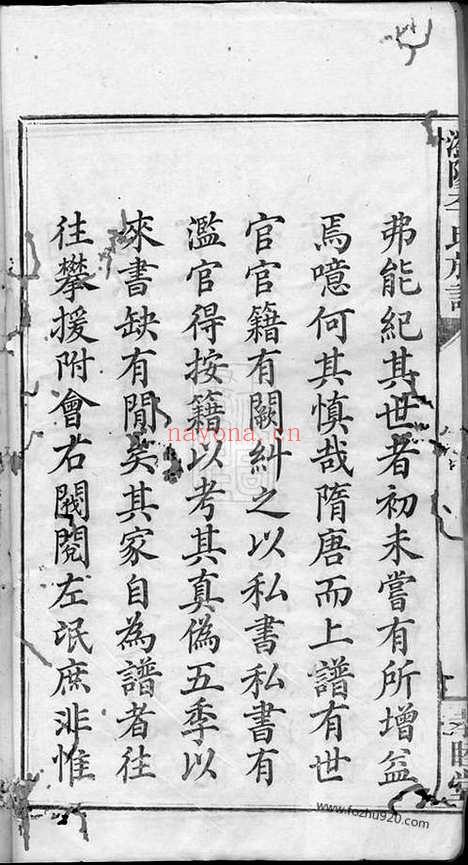 弗能紀其世者初未嘗有所增益
焉噫何其慎哉隋唐而上譜有世
官官籍有闕糾之以私書私書有
濫官得按籍以考其真偽五季以
來書缺有間矣其家自為譜者往
往攀援附會右閥閱左氓庶非惟
氏族譜
睦堂
nayona.cn
www.fozhu920.com